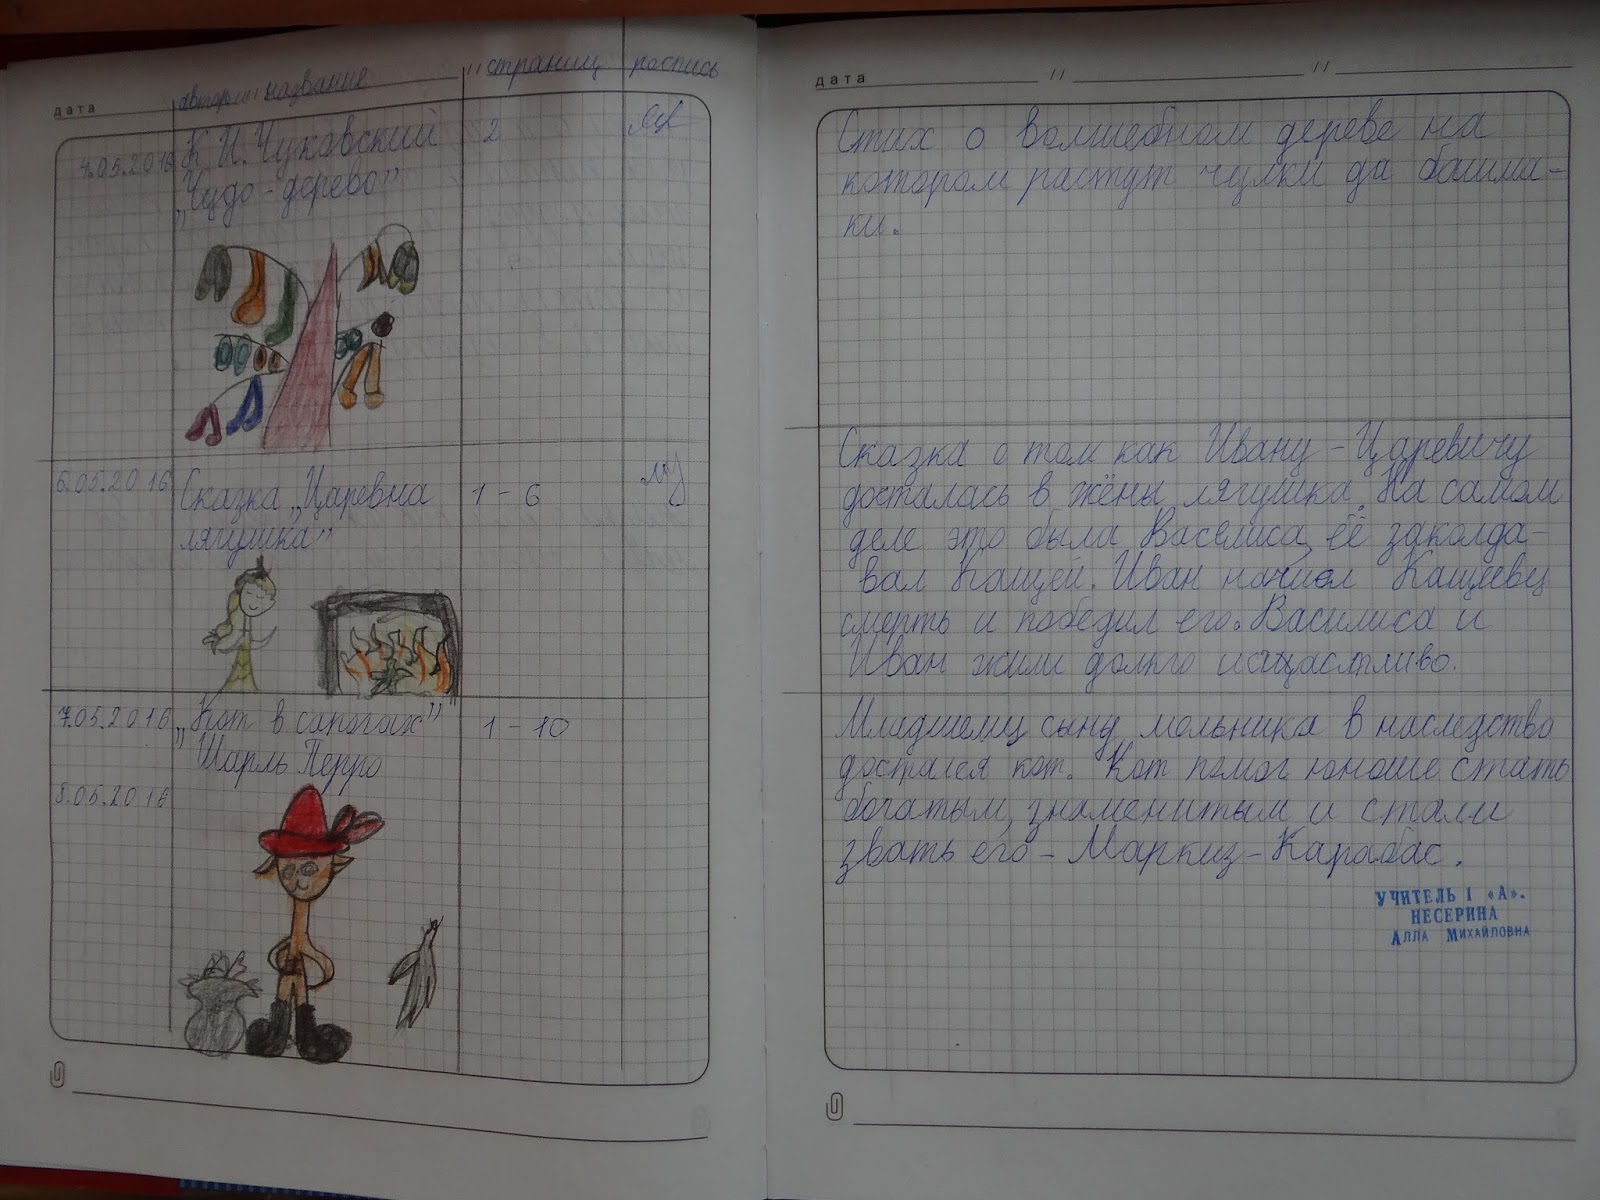 дата
автор и название
страниц
роспись
4.05.2016
К.И. Чуковский
„Чудо-дерево”
2
6.05.2016
Сказка „Царевна
лягушка”
1-6
7.05.2016
„Кот в сапогах”
Шарль Перро
1-10
8.05.2016
дата
Стих о волшебном дереве на
котором растут чулки да башма-
ки.
Сказка о том как Ивану-Царевичу
досталась в жёны лягушка. На самом
деле это была Василиса, её заколда-
вал Кащей. Иван нашёл Кащееву
смерть и победил его. Василиса и
Иван жили долго и щастливо.
Младшему сыну мельника в наследство
достался кот. Кот помог юноше стать
богатым, знаменитым и стали
звать его - Маркиз-Карабас.
УЧИТЕЛЬ 1 «А».
НЕСЕРИНА
АЛЛА МИХАЙЛОВНА